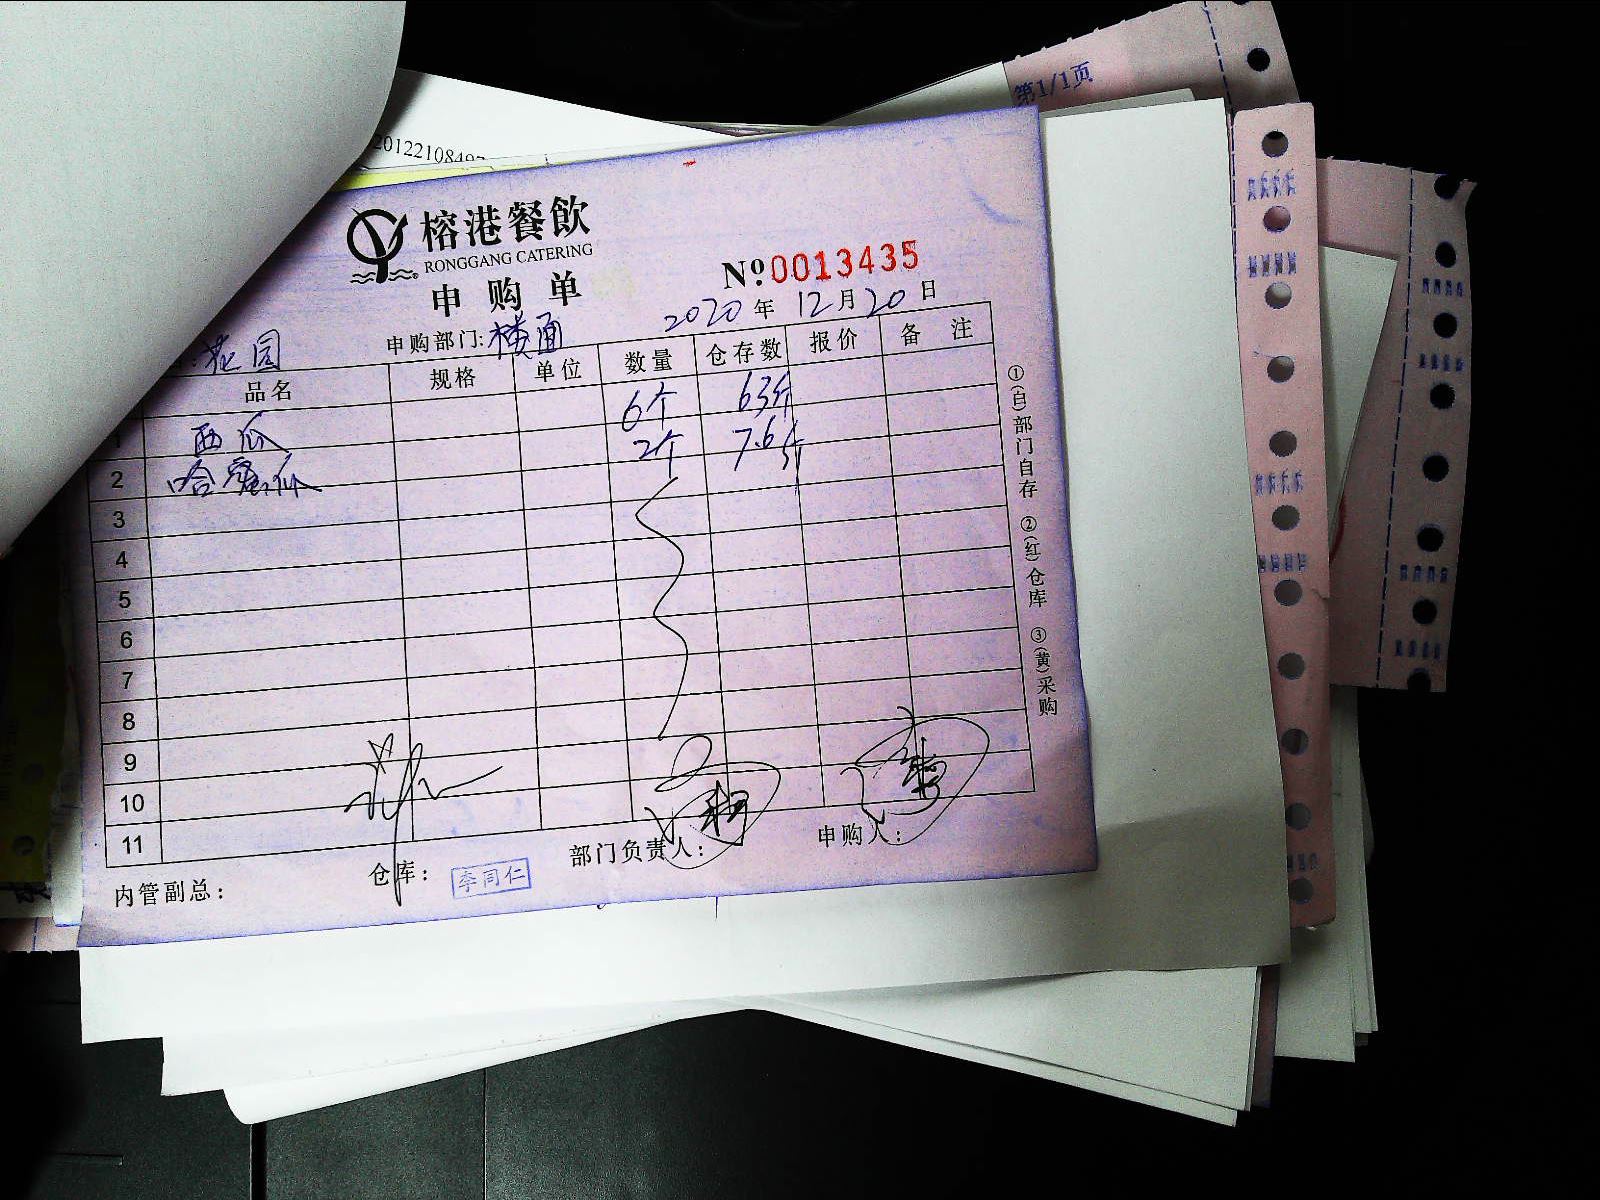 第1/1页
20122108497
榕港餐飲
RONGGANG CATERING
申购单
№0013435
花园
申购部门:楼面
2020年12月20日
品名 规格 单位 数量 仓存数 报价 备注
1 西瓜 6个 63斤
2 哈蜜瓜 2个 7.6斤
3
4
5
6
7
8
9
10
11
①(白)部门自存 ②(红)仓库 ③(黄)采购
内管副总: 仓库: 李同仁 部门负责人: 申购人: